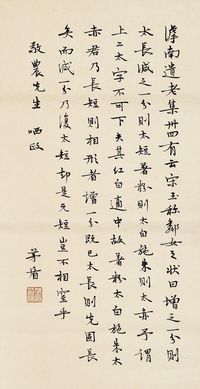 滹南遺老集卅四有云宋玉稱鄰女之狀曰增之一分則
太長減之一分則太短著粉則太白施朱則太赤予謂
上二太字不可下夫其紅白適中故著粉太白施朱太
赤若乃長短則相形者增一分既已太長則先固長
矣而減一分乃復太短却是元短豈不相窒乎
敬農先生 哂政
茅盾